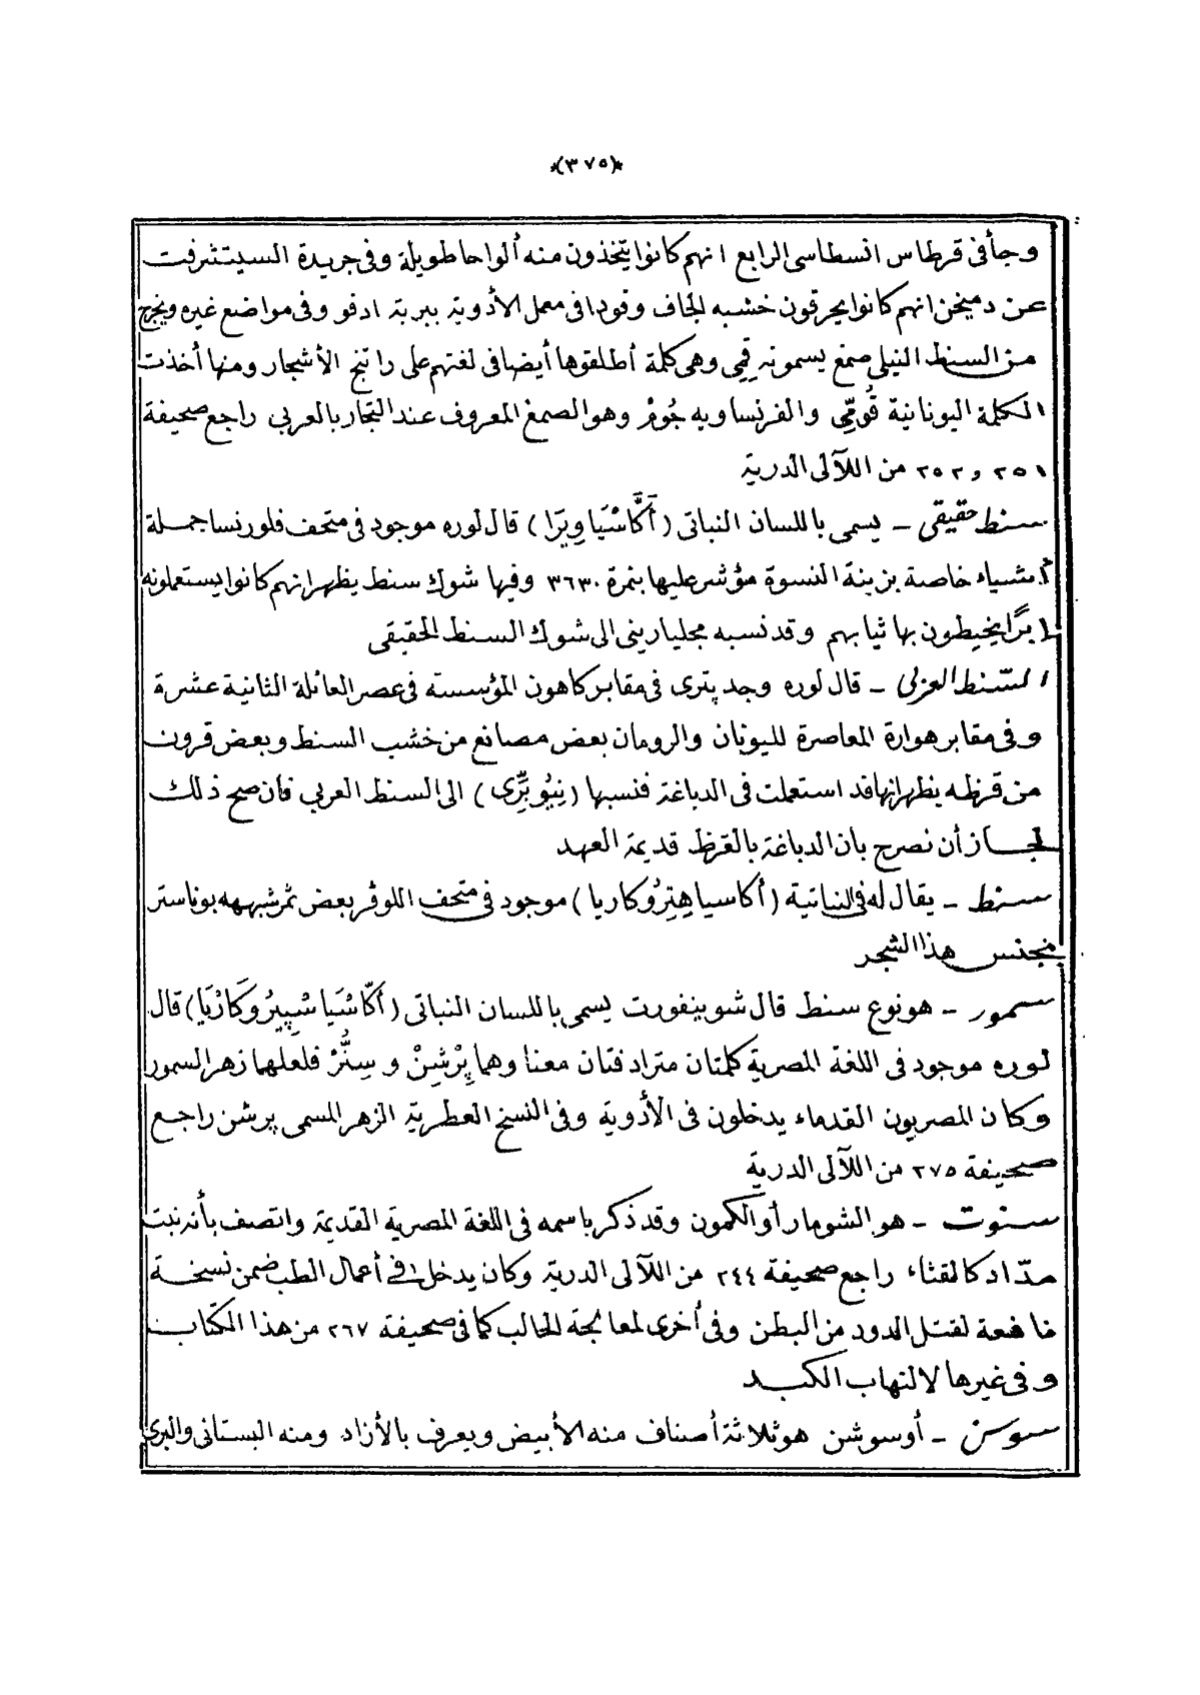 *(٣٧٥)*
وجأ فى قرطاس انسطاسى الرابع انهم كانوا يتخذون منه ألواحا طويلة وفى جريدة السيتشرفت
عن دميخن انهم كانوا يحرقون خشبه الجاف وقودا فى معمل الأدوية ببربة ادفو وفى مواضع غيره ويخرج
من السنط النيلى صمغ يسمونه قِمِى وهى كلمة أطلقوها أيضا فى لغتهم على راتنج الأشجار ومنها أخذت
الكلمة اليونانية قُومِّى والفرنساويه جُومْ وهو الصمغ المعروف عند التجار بالعربي راجع صحيفة
٢٥١ و٢٥٢ من اللآلى الدرية
سنط حقيقي - يسمى باللسان النباتى (أَكَّاسْيَا وِيرَا) قال لوره موجود فى متحف فلورنسا جملة
أشياء خاصة بزينة النسوة مؤشر عليها بنمرة ٣٦٣٠ وفيها شوك سنط يظهر انهم كانوا يستعملونه
إبرًا يخيطون بها ثيابهم وقد نسبه مجليارينى الى شوك السنط الحقيقى
السّنط العربي - قال لوره وجد پترى فى مقابر كاهون المؤسسته فى عصر العائلة الثانية عشرة
وفى مقابر هوارة المعاصرة لليونان والرومان بعض مصانع من خشب السنط وبعض قرون
من قرظه يظهر انها قد استعلت فى الدباغة فنسبها (نِيُو بِرِّى) الى السنط العربي فان صح ذلك
لجاز أن نصرح بان الدباغة بالقرظ قديمة العهد
سنط - يقال له فى النباتية (أكاسيا هِتِرُوكاربا) موجود فى متحف اللوڤر بعض ثمر شبهه بوناستر
بجنس هذا الشجر
سمور - هو نوع سنط قال شوينفورت يسمى باللسان النباتى (أكَّاسْيَا سْپِيرُوكَارْپَا) قال
لوره موجود فى اللغة المصرية كلمتان مترادفتان معنا وهما پِرْشِنْ و سِنُّرْ فلعلهما زهر السمور
وكان المصريون القدماء يدخلون فى الأدوية وفى النسخ العطرية الزهر المسمى پرشن راجع
صحيفة ٢٧٥ من اللآلى الدرية
سنوت - هو الشومار أو الكمون وقد ذكر باسمه فى اللغة المصرية القديمة واتصف بأنه نبت
مدّاد كالقثاء راجع صحيفة ٢٤٤ من اللآلى الدرية وكان يدخل فى أعمال الطب ضمن نسخة
نافعة لقتل الدود من البطن وفى أخرى لمعالجة الحالب كما فى صحيفة ٢٦٧ من هذا الكتاب
وفى غيرها لالتهاب الكبد
سوسن - أوسوشن هو ثلاثة أصناف منه الأبيض ويعرف بالأزاد ومنه البستانى والبرى